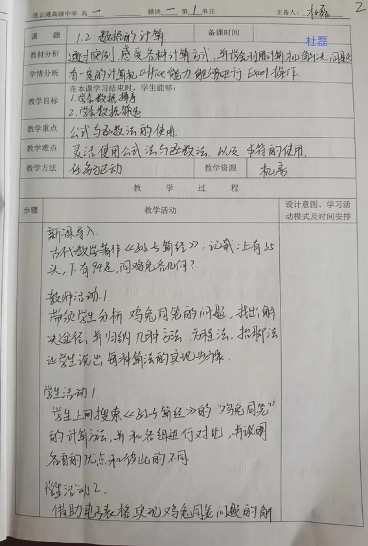 连云港高级中学 高一 模块一 第1单元 主备人：杜磊 2
课题 1.2 数据的计算 备课时间 杜磊
教材分析 通过实例，感受各种计算方式，并学会利用计算机解决问题
学情分析 有一定的计算机office能力能够进行Excel操作
教学目标 在本课学习结束时，学生能够：
1.学会数据排序
2.学会数据筛选
教学重点 公式与函数法的使用
教学难点 灵活使用公式法与函数法，以及 符的使用.
教学方法 任务驱动 教学资源 机房
教 学 过 程
步骤 教学活动 设计意图、学习活动模式及时间安排
新课导入
古代数学著作《孙子算经》，记载：上有35
头，下有94足，问鸡兔各几何？
教师活动.1
带领学生分析 鸡兔同笼的问题，找出解
决途径，并归纳几种方法，方程法，抬脚法
让学生说出每种算法的实现步骤.
学生活动1
学生上网搜索《孙子算经》的“鸡兔同笼”
的计算方法，并和各组进行对比，并说明
各自的优点和彼此的不同
学生活动2.
借助电子表格实现鸡兔同笼问题的解